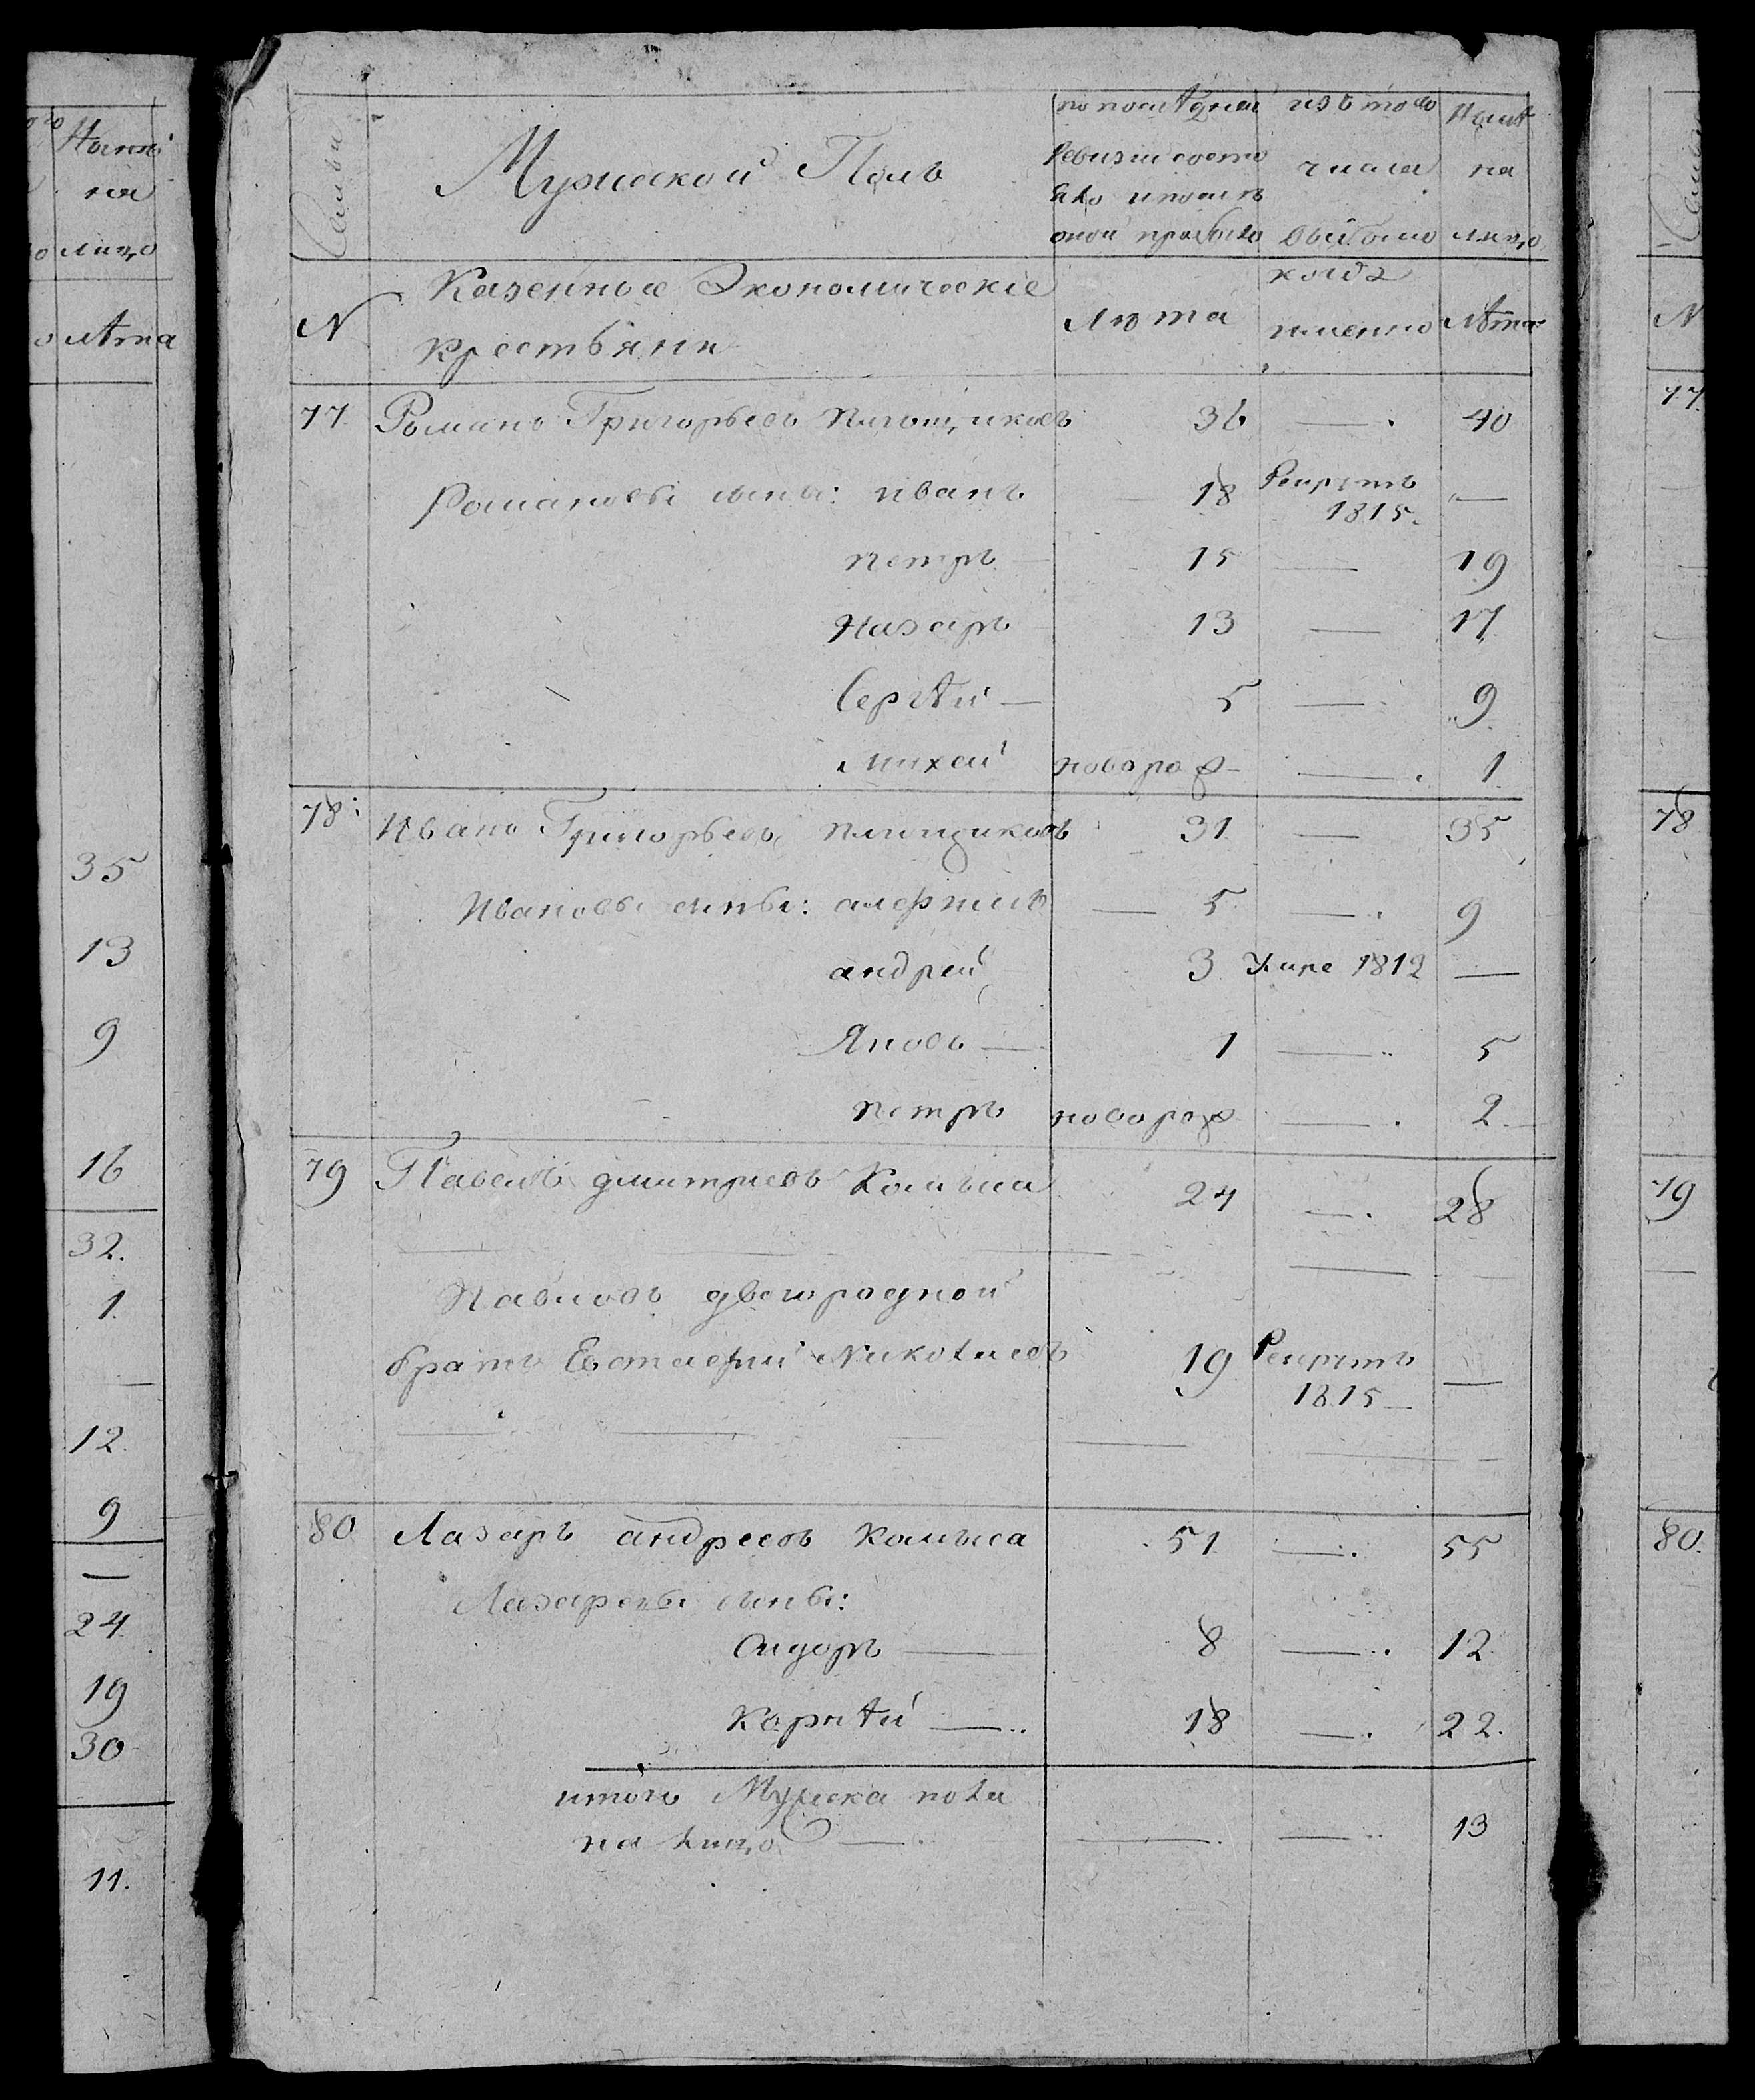 Нынѣ
на
лицо
лѣта
35
13
9
16
32.
1.
12.
9
24
19
30
11.
Семьи
Мужеской Полъ
по последней
Ревизии состо
яло и после
оной прибыло
изъ того
числа
выбыло
Нынѣ
на
лицо
N
Казенные Экономическіе
крестьяне
Лѣта
когда
именно
Лѣта
77 Романъ Григорьевъ 36 — 40
Романовы сыны: иванъ 18 Рекрутъ 1815. —
петръ 15 — 19
Назаръ 13 — 17
Сергѣй — 5 — 9
Михей новорож — 1.
78: Иванъ Григорьевъ 31 — 35
Ивановы сыны: — 5 — 9
андрей 3 Умре 1812 —
Яковъ — 1 — 5
петръ новорож — 2.
79 Павелъ дмитриевъ 24 — 28
Павловъ двоюродной
братъ Евстафий 19 Рекрутъ 1815 —
80 Лазаръ андреевъ 51 — 55
Лазаревы сыны:
Сидоръ — 8 — 12
Корнѣй — 18 — 22.
итого Мужска пола
на лицо — — — 13
N
77.
78
79
80.